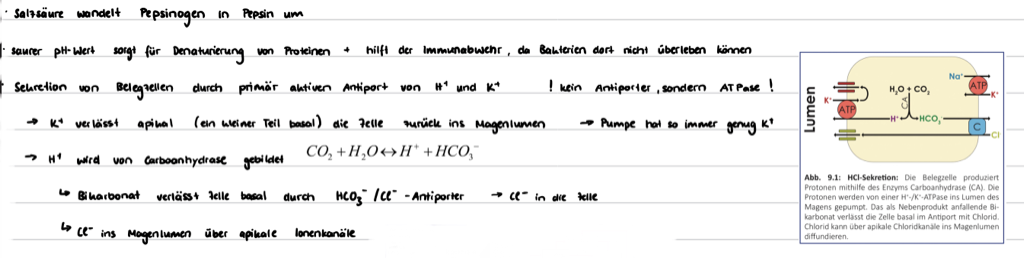 · Salzsäure wandelt Pepsinogen in Pepsin um
· saurer pH-Wert sorgt für Denaturierung von Proteinen + hilft der Immunabwehr, da Bakterien dort nicht überleben können
Sekretion von Belegzellen durch primär aktiven Antiport von H⁺ und K⁺ ! kein Antiporter, sondern ATPase !
→ K⁺ verlässt apikal (ein kleiner Teil basal) die Zelle zurück ins Magenlumen → Pumpe hat so immer genug K⁺
→ H⁺ wird von Carboanhydrase gebildet CO₂ + H₂O ↔ H⁺ + HCO₃⁻
↳ Bikarbonat verlässt Zelle basal durch HCO₃⁻/Cl⁻ -Antiporter → Cl⁻ in die Zelle
↳ Cl⁻ ins Magenlumen über apikale Ionenkanäle
Lumen
Na⁺
ATP
K⁺
H₂O + CO₂
K⁺
ATP
CA
H⁺
HCO₃⁻
C
Cl⁻
Abb. 9.1: HCl-Sekretion: Die Belegzelle produziert
Protonen mithilfe des Enzyms Carboanhydrase (CA). Die
Protonen werden von einer H⁺-/K⁺-ATPase ins Lumen des
Magens gepumpt. Das als Nebenprodukt anfallende Bi-
karbonat verlässt die Zelle basal im Antiport mit Chlorid.
Chlorid kann über apikale Chloridkanäle ins Magenlumen
diffundieren.